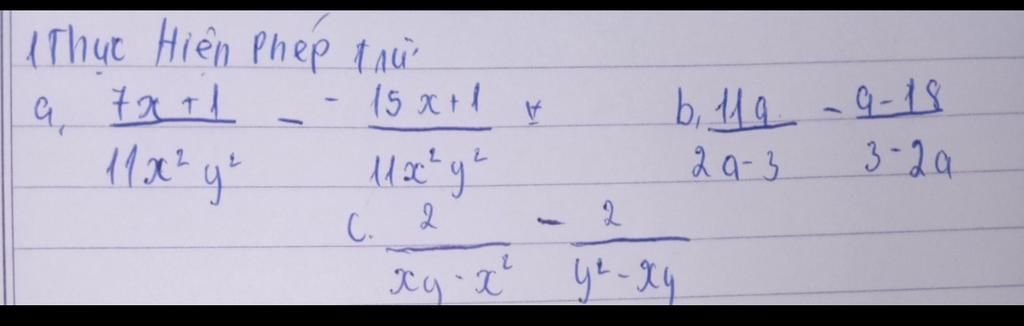 1 Thực Hiện phép trừ
a, 7x+1/11x²y² - -15x+1/11x²y² b, 11a/2a-3 - a-18/3-2a
c. 2/xy-x² - 2/y²-xy